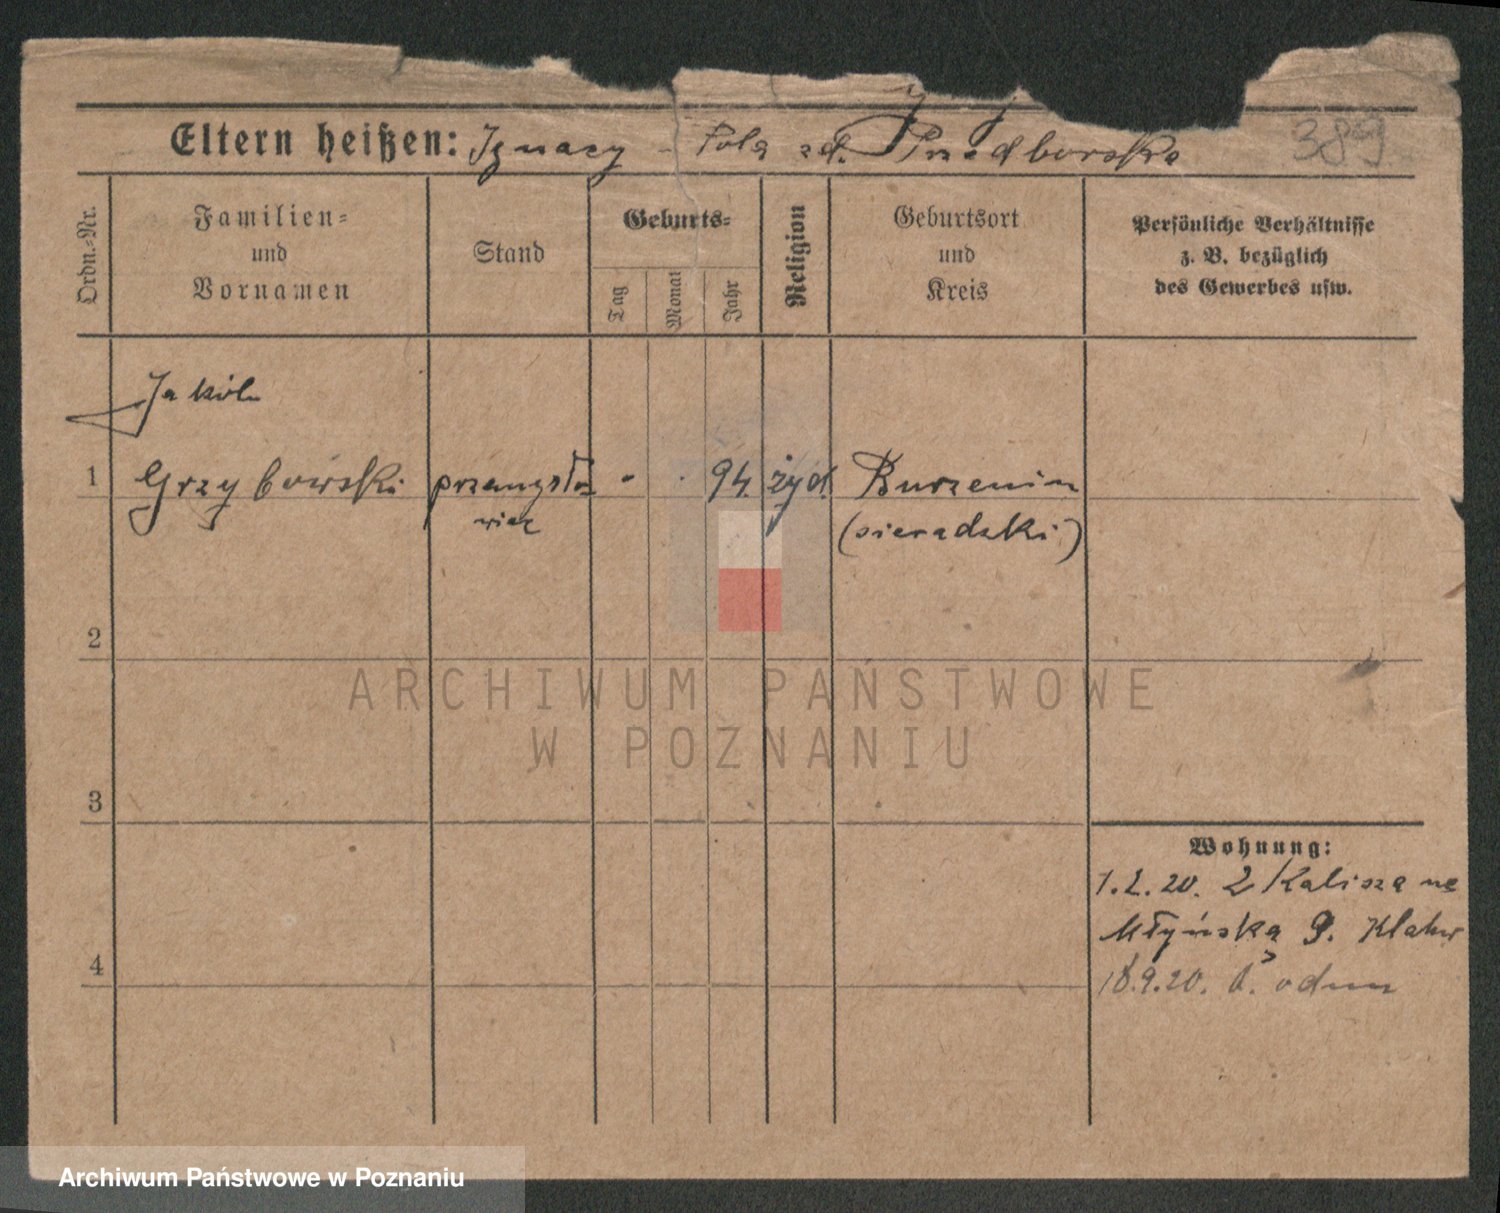 Eltern heißen: Ignacy - Pola zd. Przedborska
389
Ordn.=Nr.
Familien=
und
Vornamen
Stand
Geburts=
Tag
Monat
Jahr
Religion
Geburtsort
und
Kreis
Persönliche Verhältnisse
z. B. bezüglich
des Gewerbes usw.
Jakób
1 Grzybowski przemysło 94. żyd. Burzenin
wiec (sieradzki)
2
ARCHIWUM PAŃSTWOWE
W POZNANIU
3
Wohnung:
1.2.20. Z Kalisza na
Młyńską 9.
4
18.9.20.
Archiwum Państwowe w Poznaniu